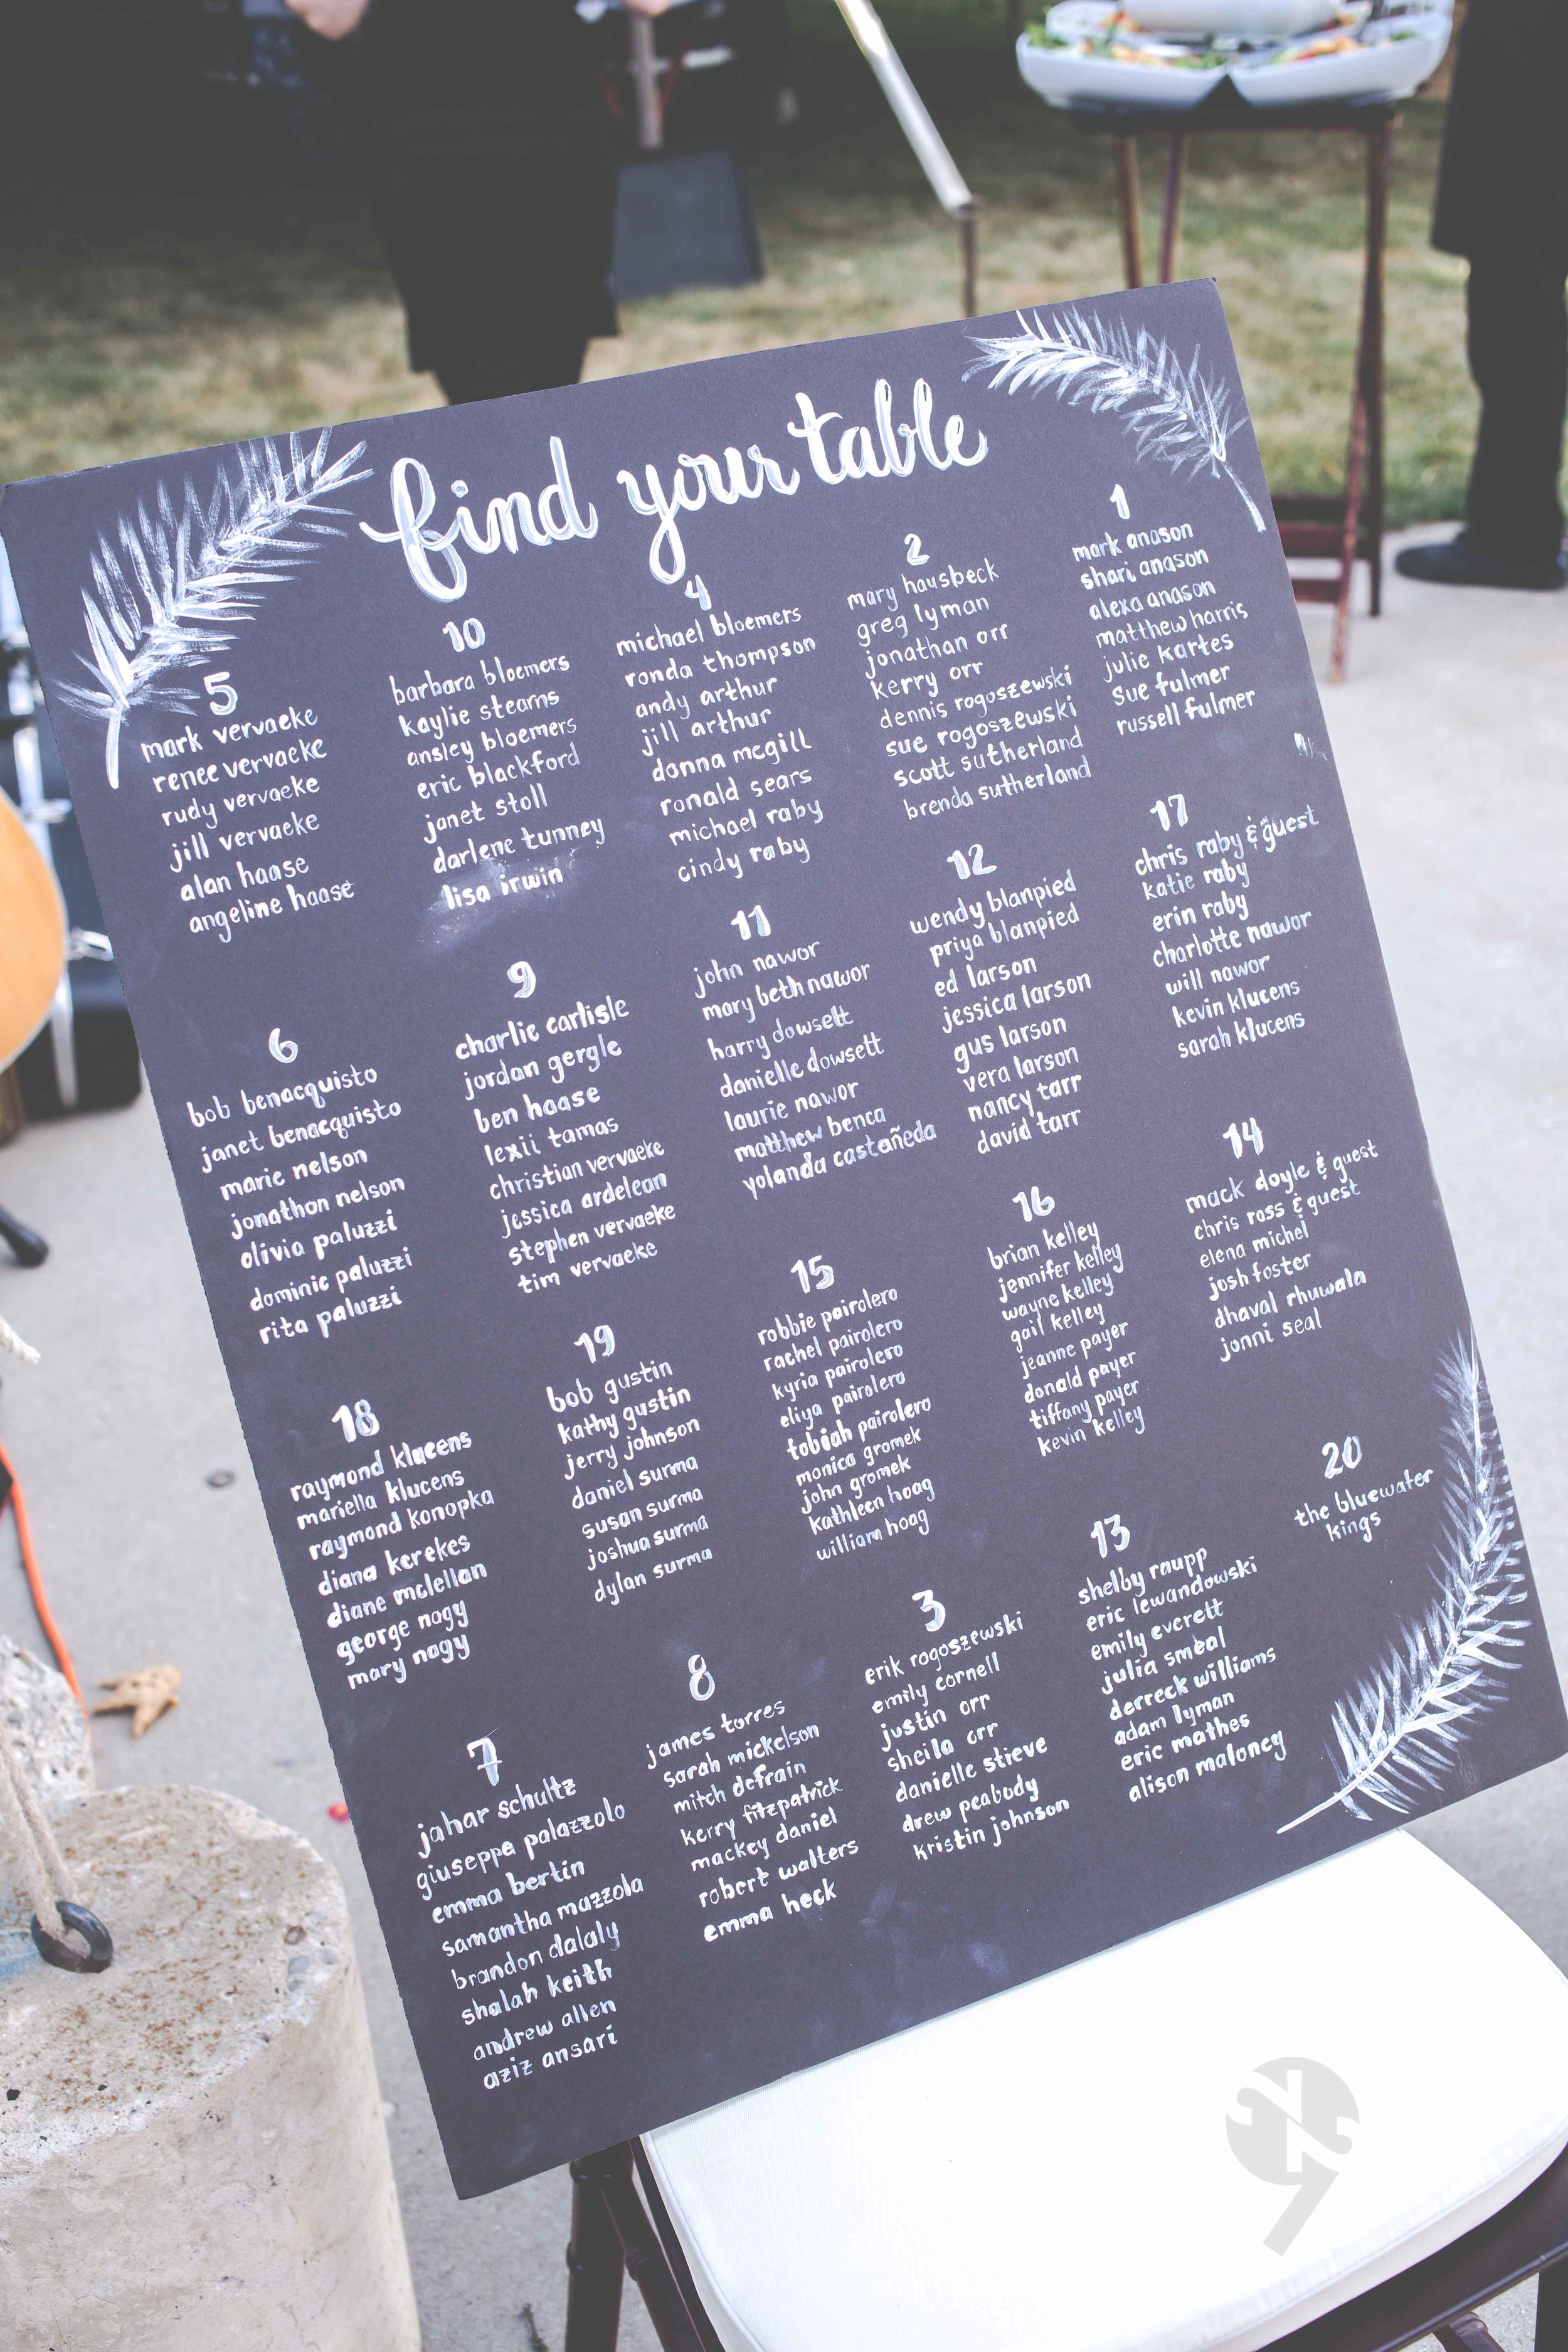 find your table
5
mark vervaeke
renee vervaeke
rudy vervaeke
jill vervaeke
alan haase
angeline haase
10
barbara bloemers
kaylie stearns
ansley bloemers
eric blackford
janet stoll
darlene tunney
lisa irwin
4
michael bloemers
ronda thompson
andy arthur
jill arthur
donna mcgill
ronald sears
michael raby
cindy raby
2
mary hausbeck
greg lyman
jonathan orr
kerry orr
dennis rogoszewski
sue rogoszewski
scott sutherland
brenda sutherland
1
mark anason
shari anason
alexa anason
matthew harris
julie kartes
sue fulmer
russell fulmer
6
bob benacquisto
janet benacquisto
marie nelson
jonathon nelson
olivia paluzzi
dominic paluzzi
rita paluzzi
9
charlie carlisle
jordan gergle
ben haase
lexii tamas
christian vervaeke
jessica ardelean
stephen vervaeke
tim vervaeke
11
john nawor
mary beth nawor
harry dowsett
danielle dowsett
laurie nawor
matthew benca
yolanda castañeda
12
wendy blanpied
priya blanpied
ed larson
jessica larson
gus larson
vera larson
nancy tarr
david tarr
17
chris raby & guest
katie raby
erin raby
charlotte nawor
will nawor
kevin klucens
sarah klucens
18
raymond klucens
mariella klucens
raymond konopka
diana kerekes
diane mclellan
george nagy
mary nagy
19
bob gustin
kathy gustin
jerry johnson
daniel surma
susan surma
joshua surma
dylan surma
15
robbie pairolero
rachel pairolero
kyria pairolero
eliya pairolero
tobiah pairolero
monica gromek
john gromek
kathleen hoag
william hoag
16
brian kelley
jennifer kelley
wayne kelley
gail kelley
jeanne payer
donald payer
tiffany payer
kevin kelley
14
mack doyle & guest
chris ross & guest
elena michel
josh foster
dhaval rhuwala
jonni seal
7
jahar schultz
giuseppe palazzolo
emma bertin
samantha mazzola
brandon dalaly
shalah keith
andrew allen
aziz ansari
8
james torres
sarah mickelson
mitch defrain
kerry fitzpatrick
mackey daniel
robert walters
emma heck
3
erik rogoszewski
emily cornell
justin orr
sheila orr
danielle stieve
drew peabody
kristin johnson
13
shelby raupp
eric lewandowski
emily everett
julia smeal
derreck williams
adam lyman
eric mathes
alison maloney
20
the bluewater
kings